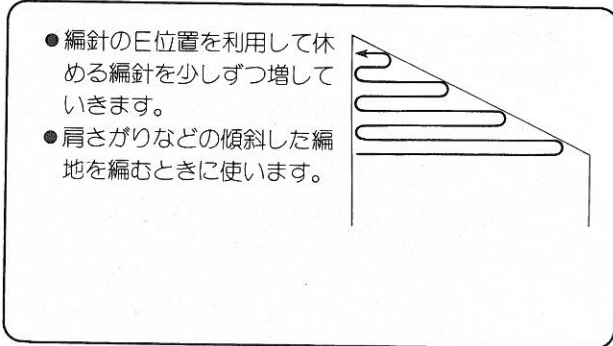 ●編針のE位置を利用して休
める編針を少しずつ増して
いきます。
●肩さがりなどの傾斜した編
地を編むときに使います。